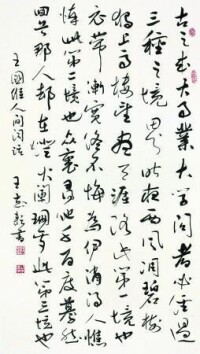 古之成大事業大学問者必經過
三種之境界昨夜西风凋碧樹
獨上高樓望盡天涯路此第一境也
衣帶漸寬終不悔為伊消得人憔
悴此第二境也衆裏尋他千百度驀然
回首那人却在燈火闌珊處此第三境也
王國維人间词话 王書